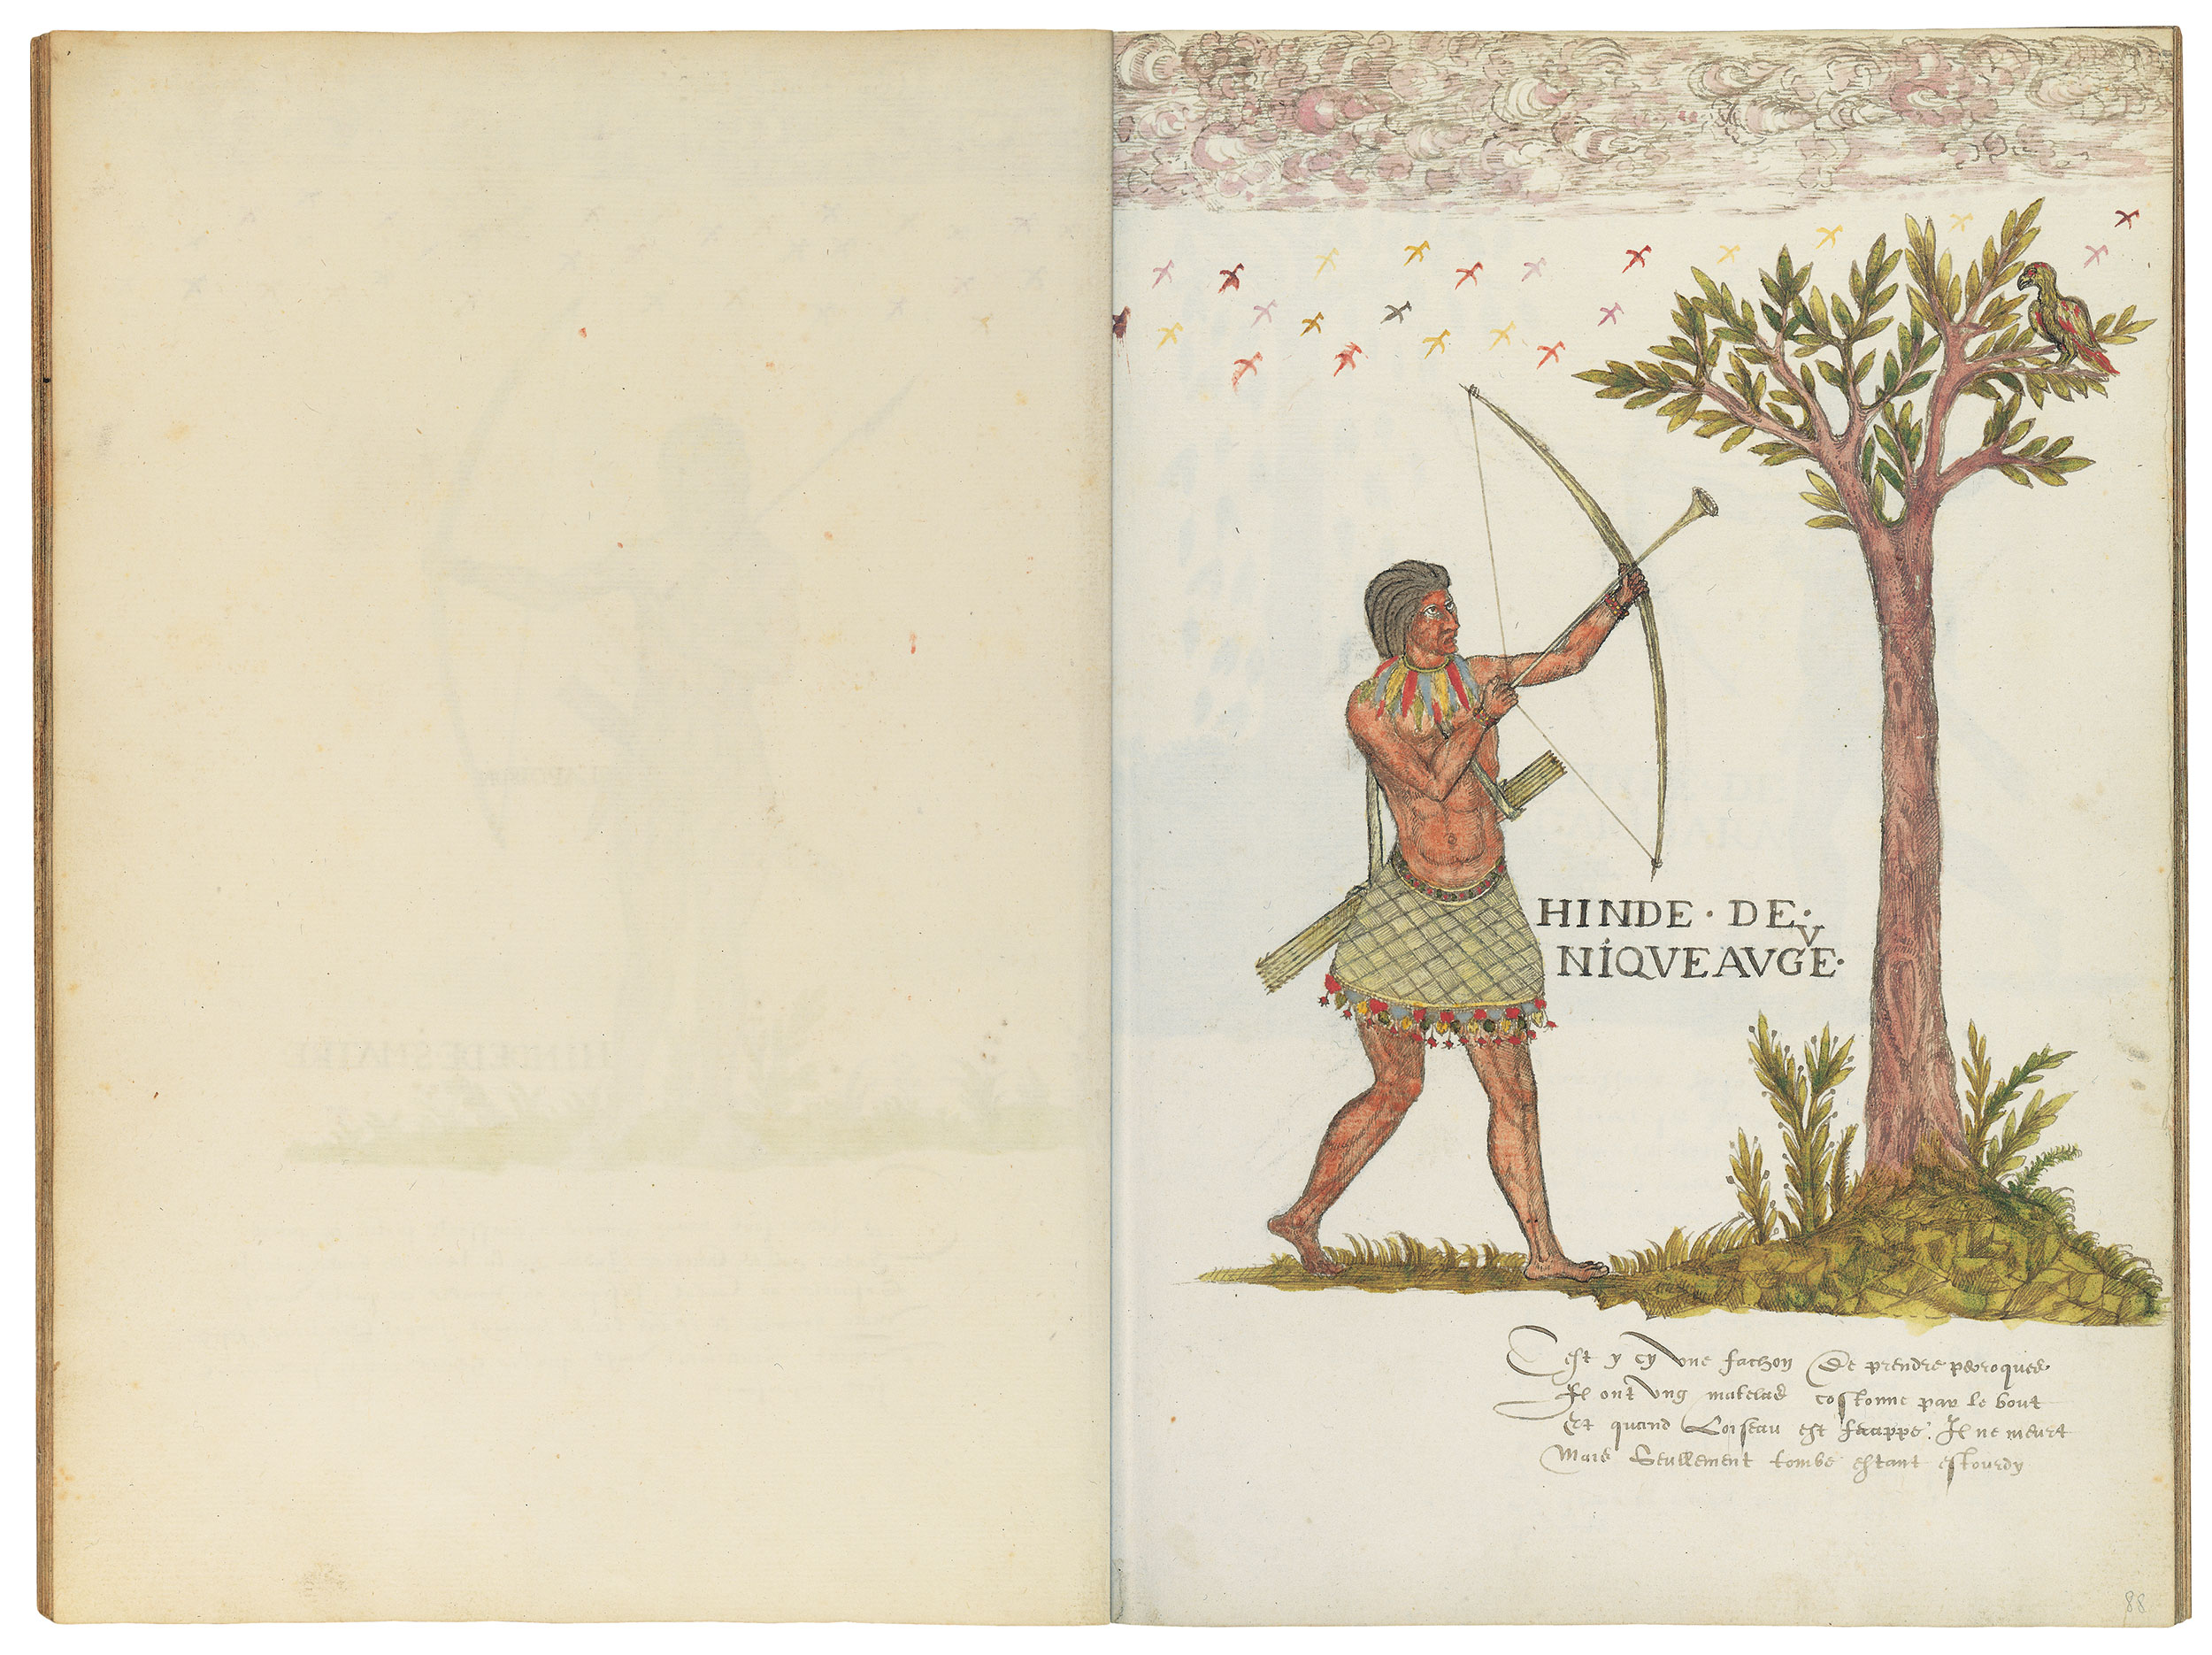 HINDE · DE ·
NIQVEAVGE ·
v
C est y cy vne fachon De prendre perroques
Il ont vng matelas costonne par le bout
Et quand Loiseau est frappe. Il ne meurt
Mais Seullement tombe estant estourdy
88